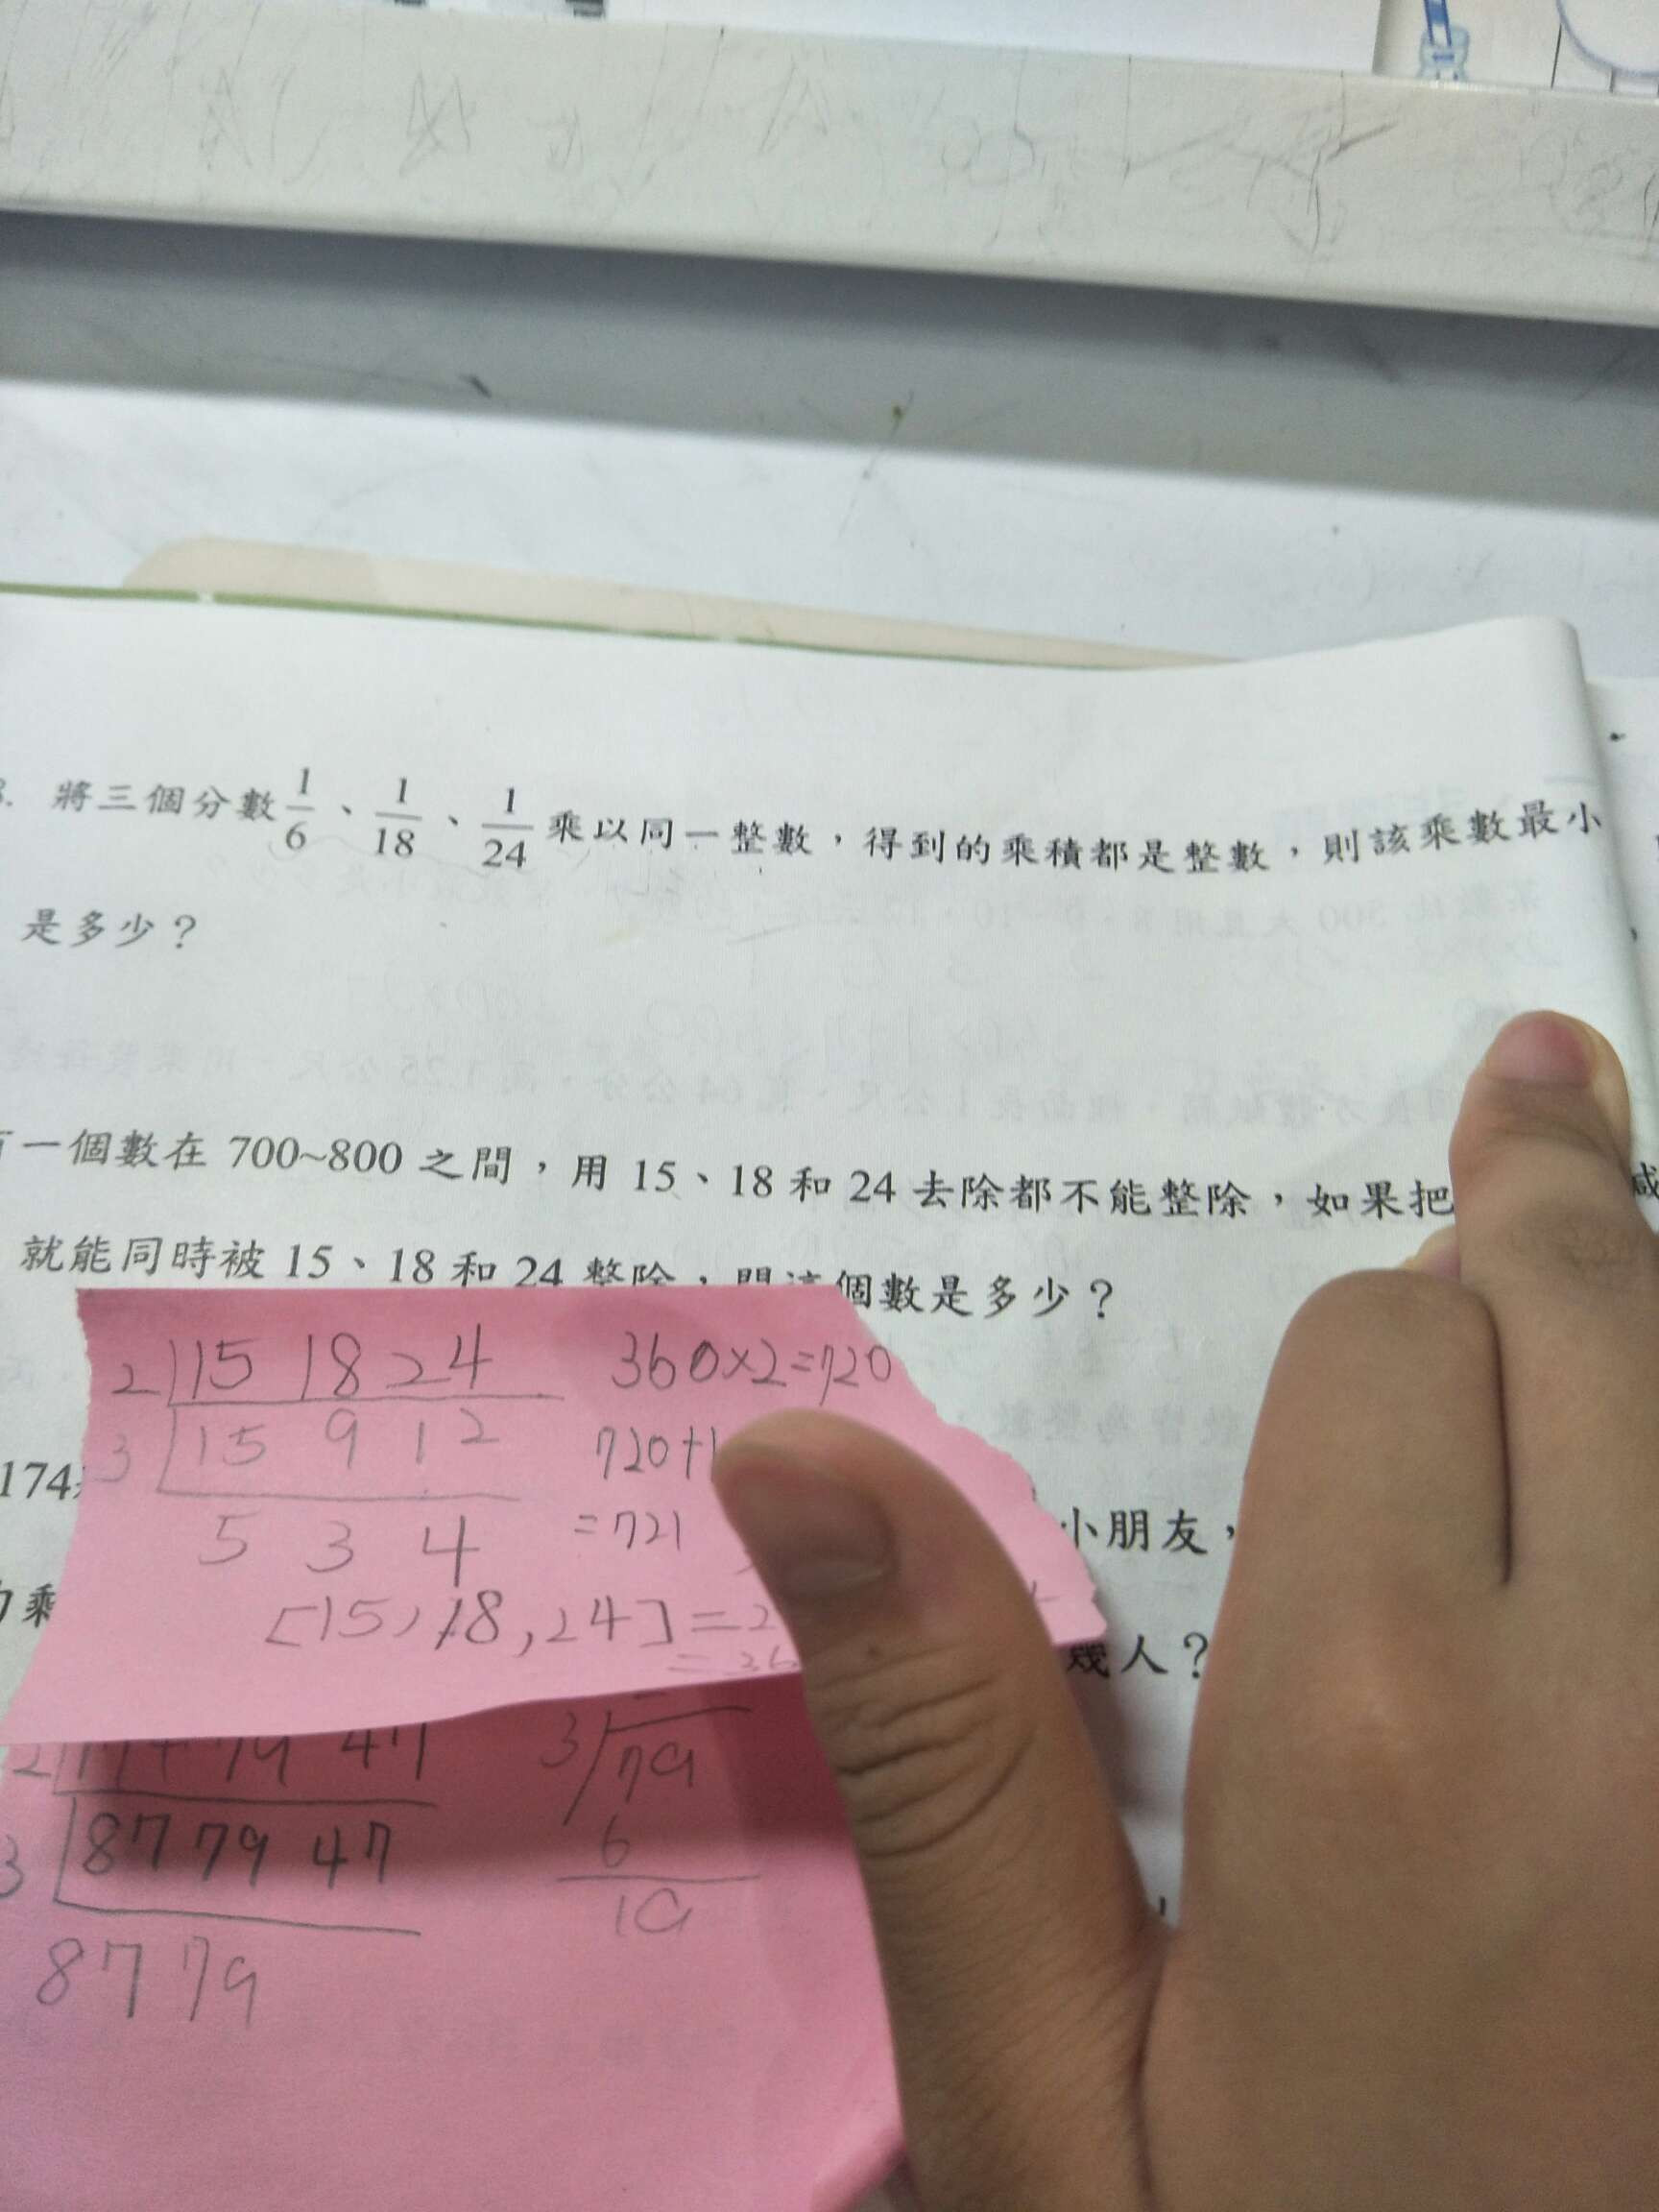 將三個分數 1/6、1/18、1/24 乘以同一整數，得到的乘積都是整數，則該乘數最小
是多少？
一個數在 700~800 之間，用 15、18 和 24 去除都不能整除，如果把
就能同時被 15、18 和 24 整除，問這個數是多少？
2 15 18 24 360×2=720
3 15 9 12 720+1
5 3 4 =721
174
小朋友，
[15,18,24]=2
乘
幾人？
3 79
3 87 79 47
6
19
87 79